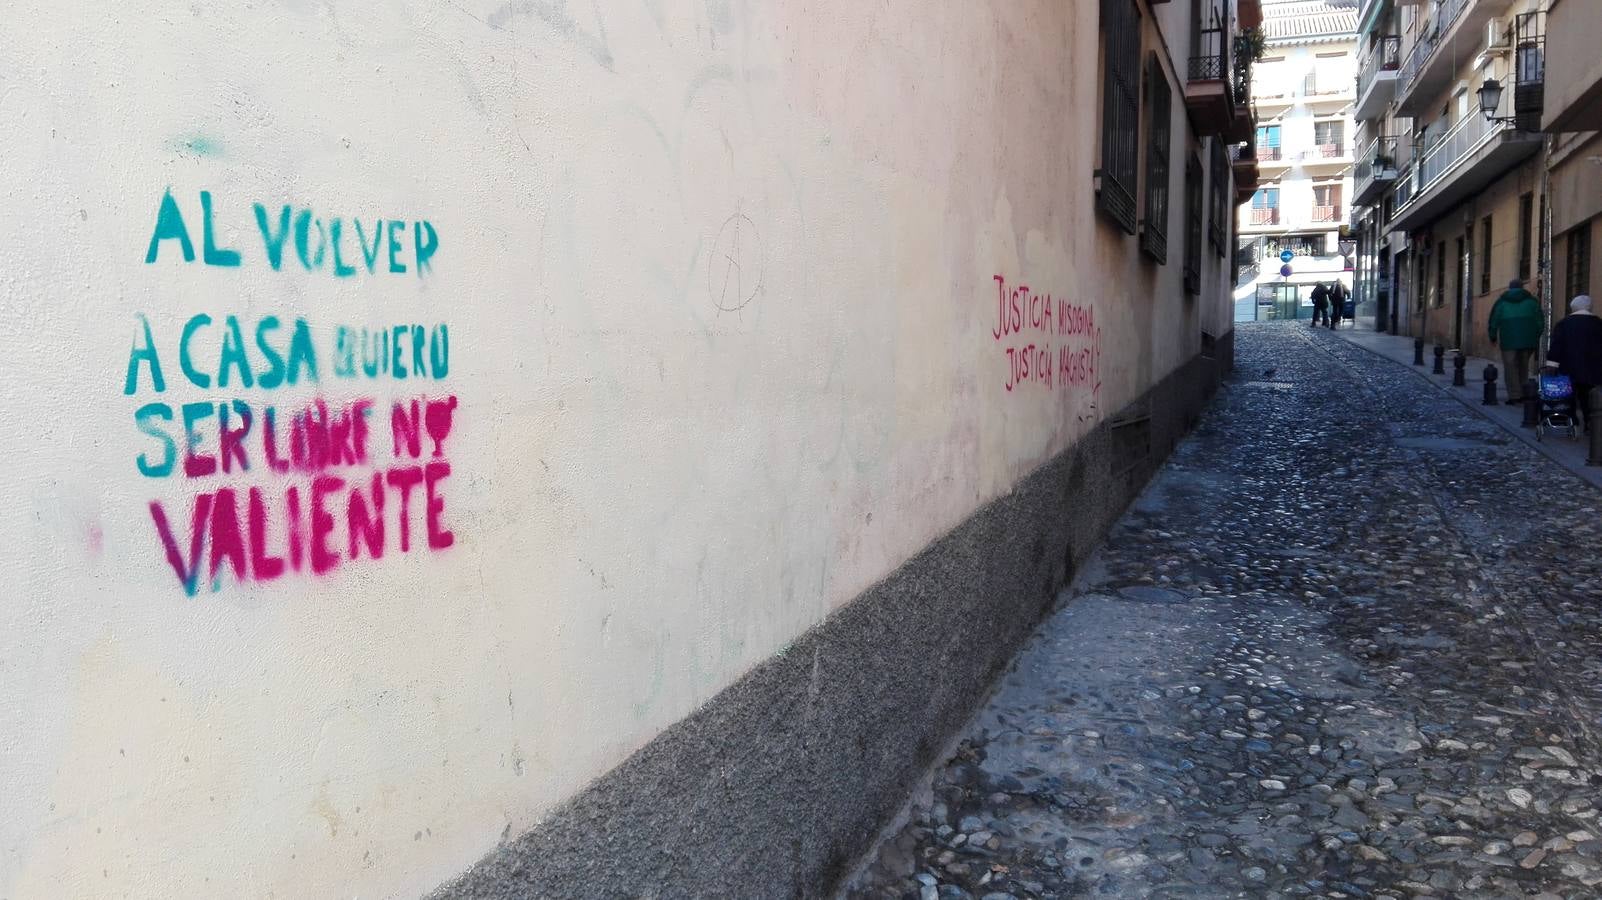 AL VOLVER
A CASA QUIERO
SER LIBRE NO
VALIENTE
JUSTICIA MISOGINA
JUSTICIA MACHISTA